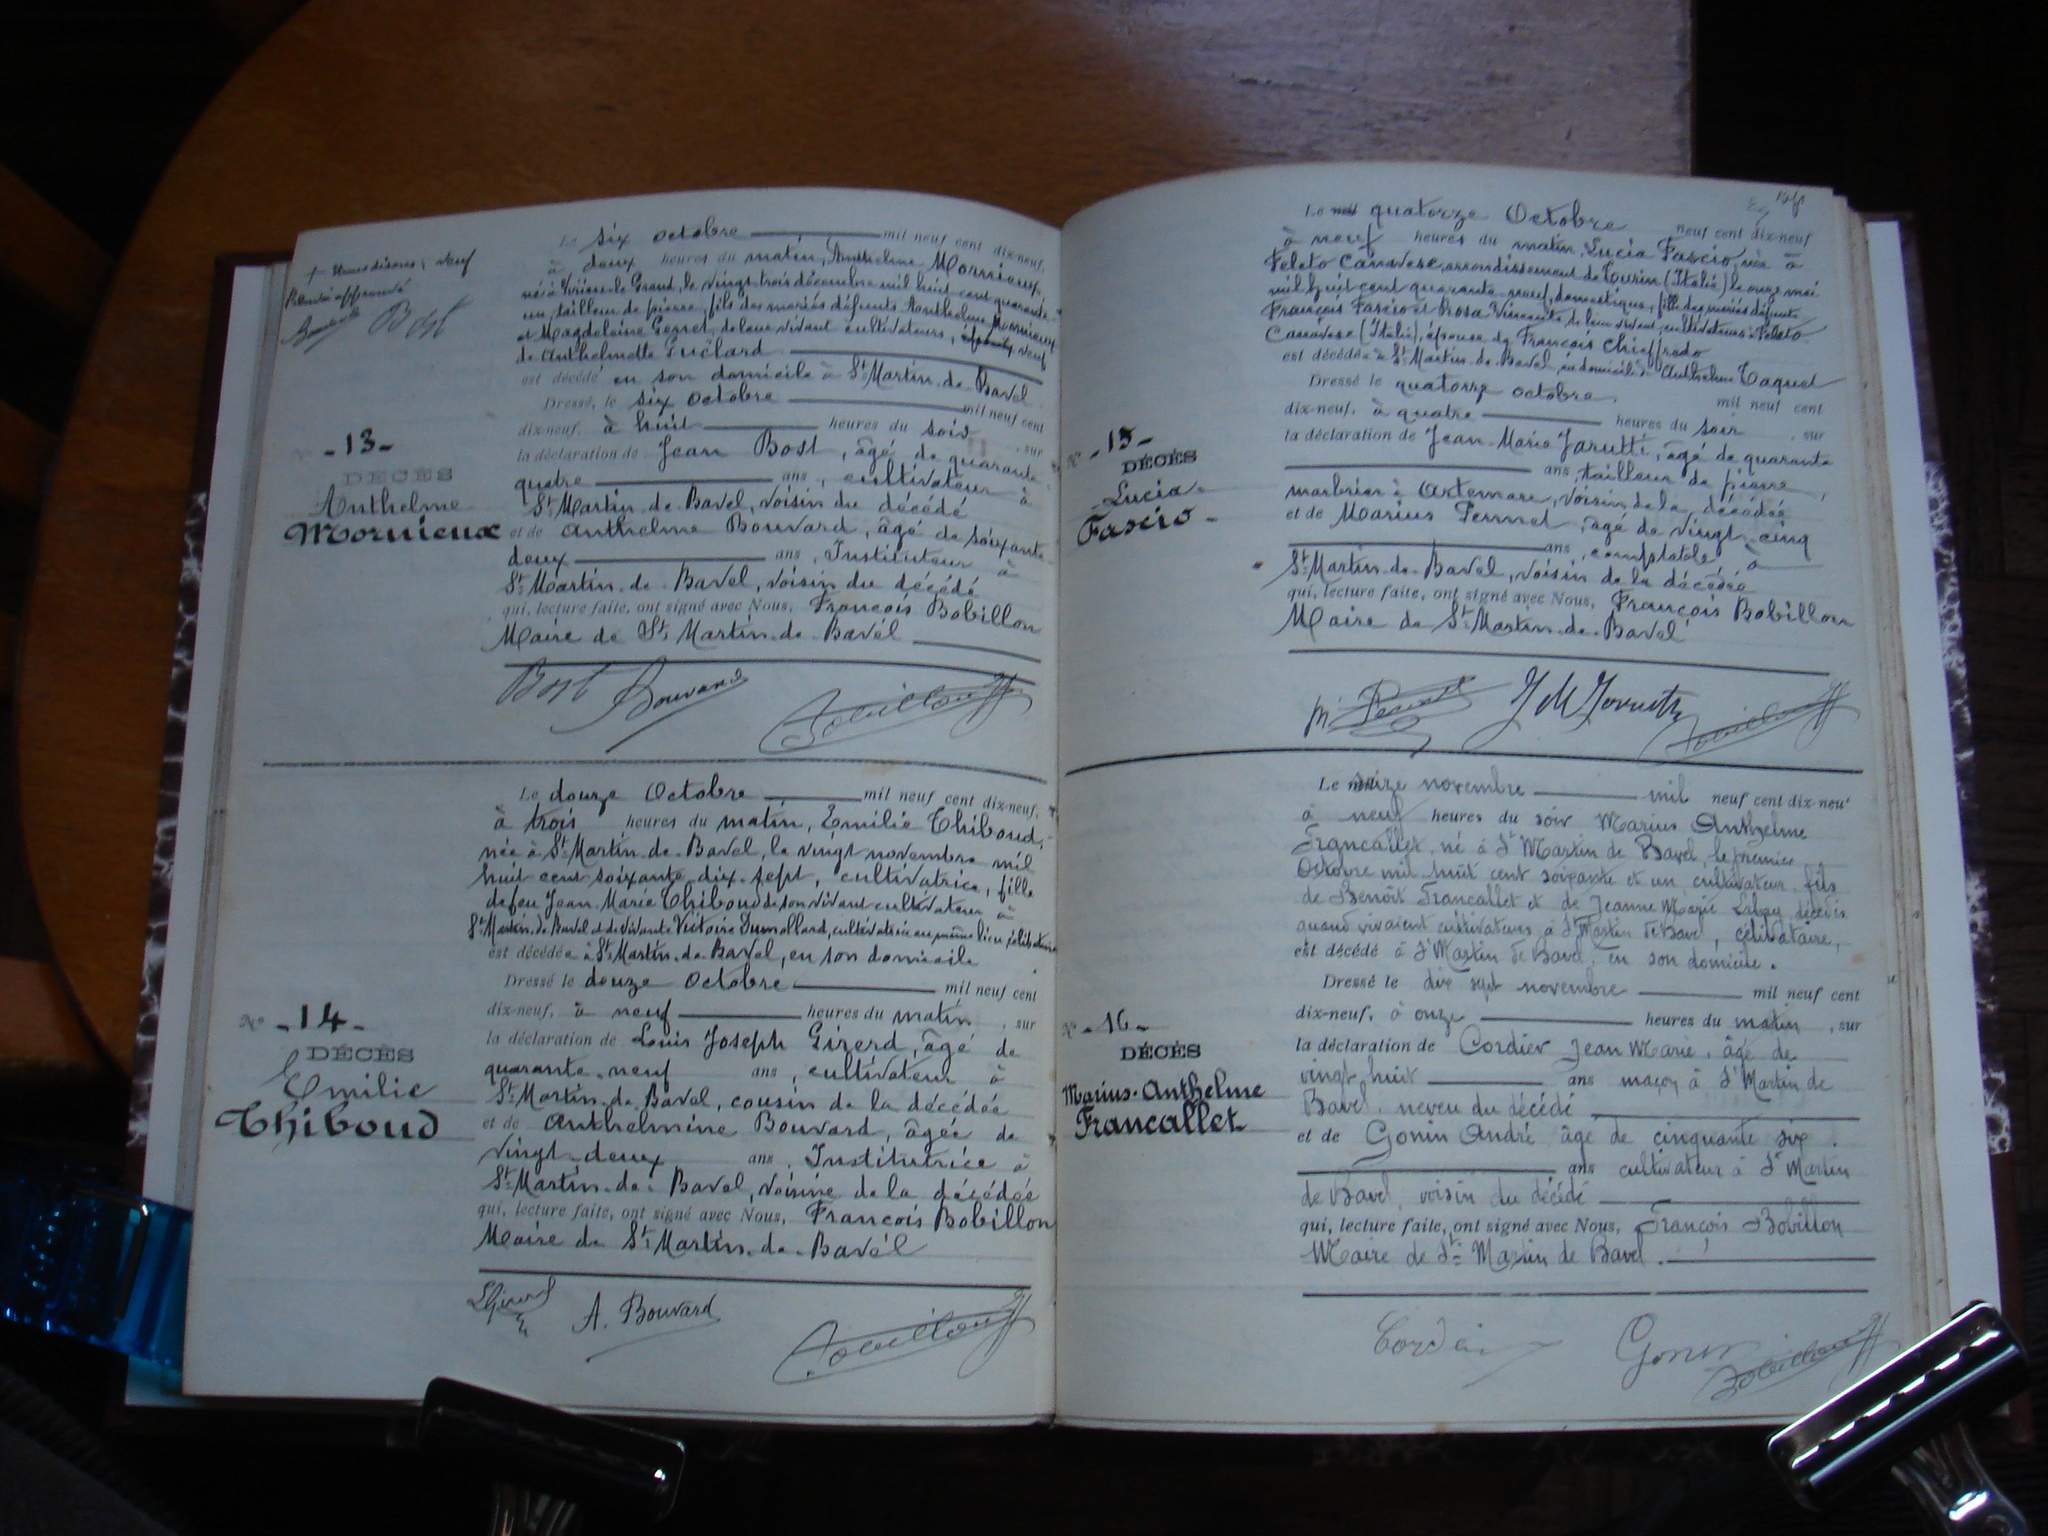 neuf
Bost
Le six octobre mil neuf cent dix-neuf,
à deux heures du matin, Anthelme Mornieux,
né à Virieu-le-Grand, le vingt trois décembre mil huit cent quarante-
un, tailleur de pierre, fils des mariés défunts Anthelme Mornieux
et Magdeleine de leur vivant cultivateurs, veuf
de Anthelmette
est décédé en son domicile à St Martin-de-Bavel
Dressé, le six octobre mil neuf cent
dix-neuf, à huit heures du soir, sur
la déclaration de Jean Bost, âgé de quarante-
quatre ans, cultivateur à
St Martin-de-Bavel, voisin du décédé
et de Anthelme Bouvard, âgé de soixante-
deux ans, Instituteur à
St Martin-de-Bavel, voisin du décédé
qui, lecture faite, ont signé avec Nous, François Bobillon
Maire de St Martin-de-Bavel
-13-
DÉCÈS
Anthelme
Mornieux
Bost Bouvard Bobillon
Le douze Octobre mil neuf cent dix-neuf,
à trois heures du matin, Emilie Thiboud,
née à St Martin-de-Bavel, le vingt novembre mil
huit cent soixante-dix-sept, cultivatrice, fille
de feu Jean-Marie Thiboud de son vivant cultivateur à
St Martin-de-Bavel et de vivante Victoire Dumollard, cultivatrice au même lieu, célibataire
est décédée à St Martin-de-Bavel, en son domicile
Dressé le douze octobre mil neuf cent
dix-neuf, à neuf heures du matin, sur
la déclaration de Louis Joseph Girerd, âgé de
quarante-neuf ans, cultivateur à
St Martin-de-Bavel, cousin de la décédée
et de Anthelmine Bouvard, âgée de
vingt-deux ans, Institutrice à
St Martin-de-Bavel, voisine de la décédée
qui, lecture faite, ont signé avec Nous, François Bobillon
Maire de St Martin-de-Bavel
No -14-
DÉCÈS
Emilie
Thiboud
A. Bouvard Bobillon
Le quatorze Octobre neuf cent dix-neuf
à neuf heures du matin, Lucia Fascio, née à
Feleto Canavese, arrondissement de Turin (Italie) le onze mai
mil huit cent quarante-neuf, domestique, fille des mariés défunts
François Fascio et Rosa Vincente de leur vivant, cultivateurs à Feleto-
Canavese (Italie), épouse de François Chieffredo
est décédée à St Martin-de-Bavel, au domicile de Anthelme Taquet
Dressé le quatorze octobre mil neuf cent
dix-neuf, à quatre heures du soir, sur
la déclaration de Jean-Marie Jarutti, âgé de quarante
ans, tailleur de pierre,
marbrier à Artemare, voisin de la décédée
et de Marius Pernet, âgé de vingt-cinq
ans, comptable, à
St Martin-de-Bavel, voisin de la décédée
qui, lecture faite, ont signé avec Nous, François Bobillon
Maire de St Martin-de-Bavel
No -15-
DÉCÈS
-Lucia-
Fascio-
Bobillon
Le seize novembre mil neuf cent dix-neuf
à neuf heures du soir Marius Anthelme
Francallet, né à St Martin de Bavel, le premier
Octobre mil huit cent soixante et un, cultivateur, fils
de Benoît Francallet et de Jeanne Marie décédés
quand vivaient cultivateurs à St Martin de Bavel, célibataire,
est décédé à St Martin de Bavel, en son domicile.
Dressé le dix sept novembre mil neuf cent
dix-neuf, à onze heures du matin, sur
la déclaration de Cordier Jean Marie, âgé de
vingt huit ans maçon à St Martin de
Bavel, neveu du décédé
et de Gonin André âgé de cinquante six
ans cultivateur à St Martin
de Bavel, voisin du décédé
qui, lecture faite, ont signé avec Nous, François Bobillon
Maire de St Martin de Bavel.
No -16-
DÉCÈS
Marius-Anthelme
Francallet
Cordier Gonin Bobillon